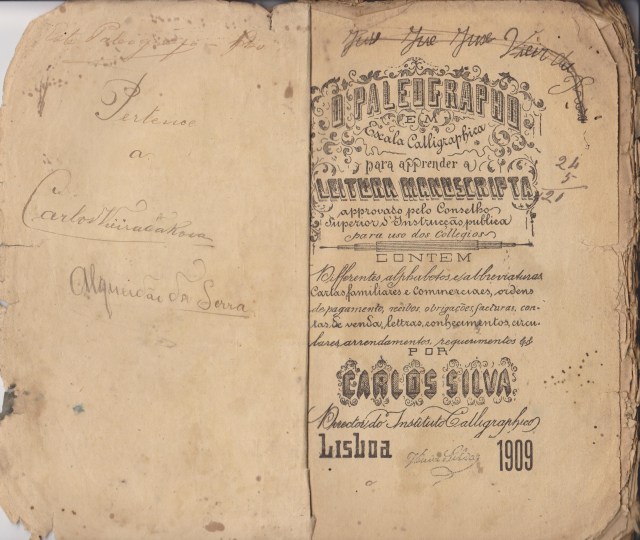 Pertence
a
Carlos Vieira da Rosa
Alqueidão da Serra
Jose Jose Jose Vieira da
O PALEOGRAPHO
EM
Escala Calligraphica
para apprender a
LEITURA MANUSCRIPTA
approvado pelo Conselho
Superior d'Instrucção publica
para uso dos Collegios
CONTEM
Differentes alphabetos e abbreviaturas
Cartas familiares e Commerciaes, ordens
de pagamento, recibos, obrigações, facturas, con-
tas de venda, lettras, conhecimentos, circu-
lares, arrendamentos, requerimentos &
POR
CARLOS SILVA
Director do Instituto Calligraphico
Lisboa
1909
24
5
21